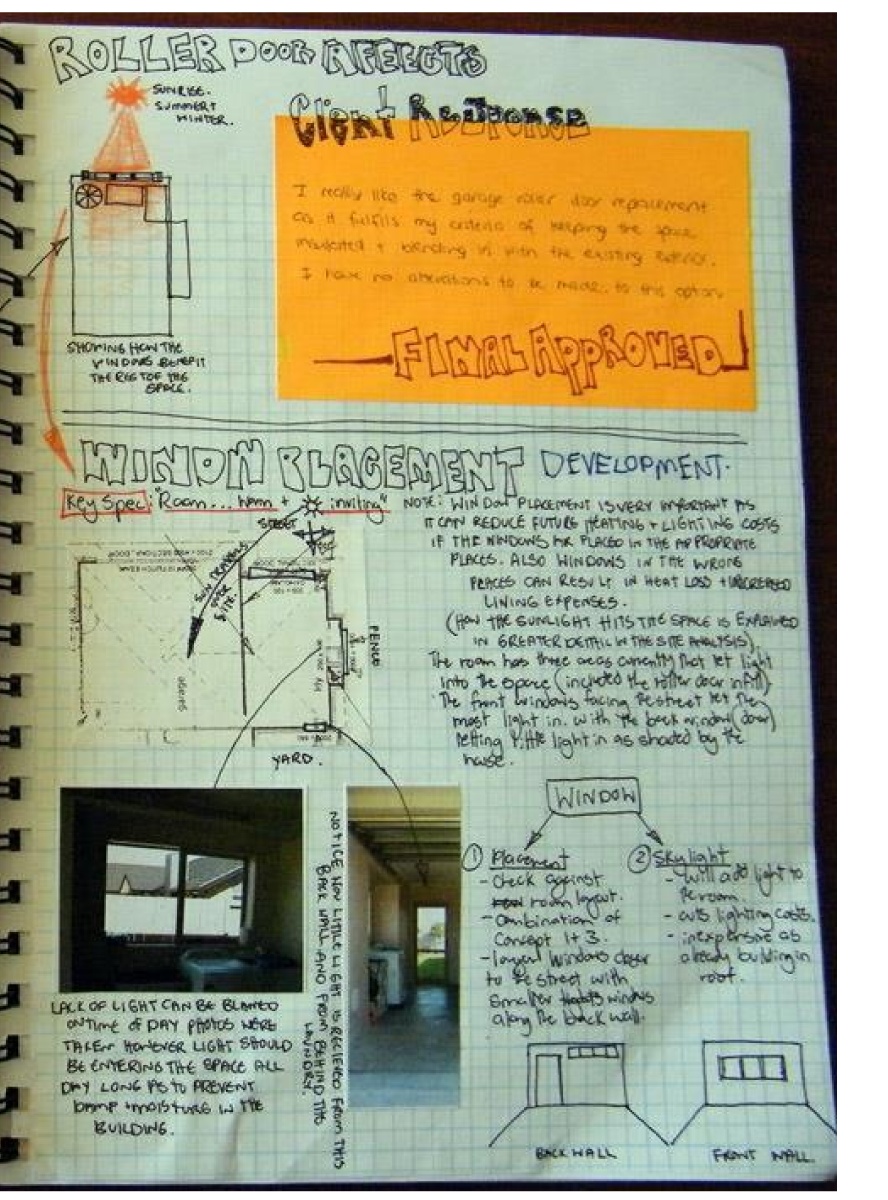 ROLLER DOOR AFFECTS
SUNRISE.
SUMMER +
WINTER.
SHOWING HOW THE
WINDOWS BENEFIT
THE REST OF THE
SPACE.
Client Response
I really like the garage roller door replacement
as it fulfils my criteria of keeping the space
insulated + blending in with the existing exterior.
I have no alterations to be made to this option
FINAL APPROVED
WINDOW PLACEMENT DEVELOPMENT.
Key Spec: "Room... warm + inviting"
STREET
SUN TRAVELS
OVER
SITE.
FENCE
YARD.
NOTE: WINDOW PLACEMENT IS VERY IMPORTANT AS
IT CAN REDUCE FUTURE HEATING + LIGHTING COSTS
IF THE WINDOWS ARE PLACED IN THE APPROPRIATE
PLACES. ALSO WINDOWS IN THE WRONG
PLACES CAN RESULT IN HEAT LOSS + INCREASED
LINING EXPENSES.
(HOW THE SUNLIGHT HITS THE SPACE IS EXPLAINED
IN GREATER DETAIL IN THE SITE ANALYSIS).
The room has three areas currently that let light
into the space (included the roller door infill)
The front windows facing the street let the
most light in. with the back window (door)
letting little light in as shaded by the
house.
LACK OF LIGHT CAN BE BLAMED
ON TIME OF DAY PHOTOS WERE
TAKEN HOWEVER LIGHT SHOULD
BE ENTERING THE SPACE ALL
DAY LONG AS TO PREVENT
DAMP + MOISTURE IN THE
BUILDING.
NOTICE HOW LITTLE LIGHT IS RECIEVED FROM THIS
BACK WALL AND FROM BEHIND THE
LAUNDRY.
WINDOW
① Placement
- Check against
room layout.
- Combination of
Concept 1 + 3.
- largest windows closer
to the street with
smaller windows
along the back wall.
② Skylight
- Will add light to
the room.
- cuts lighting costs.
- inexpensive as
already building in
roof.
BACK WALL
FRONT WALL.